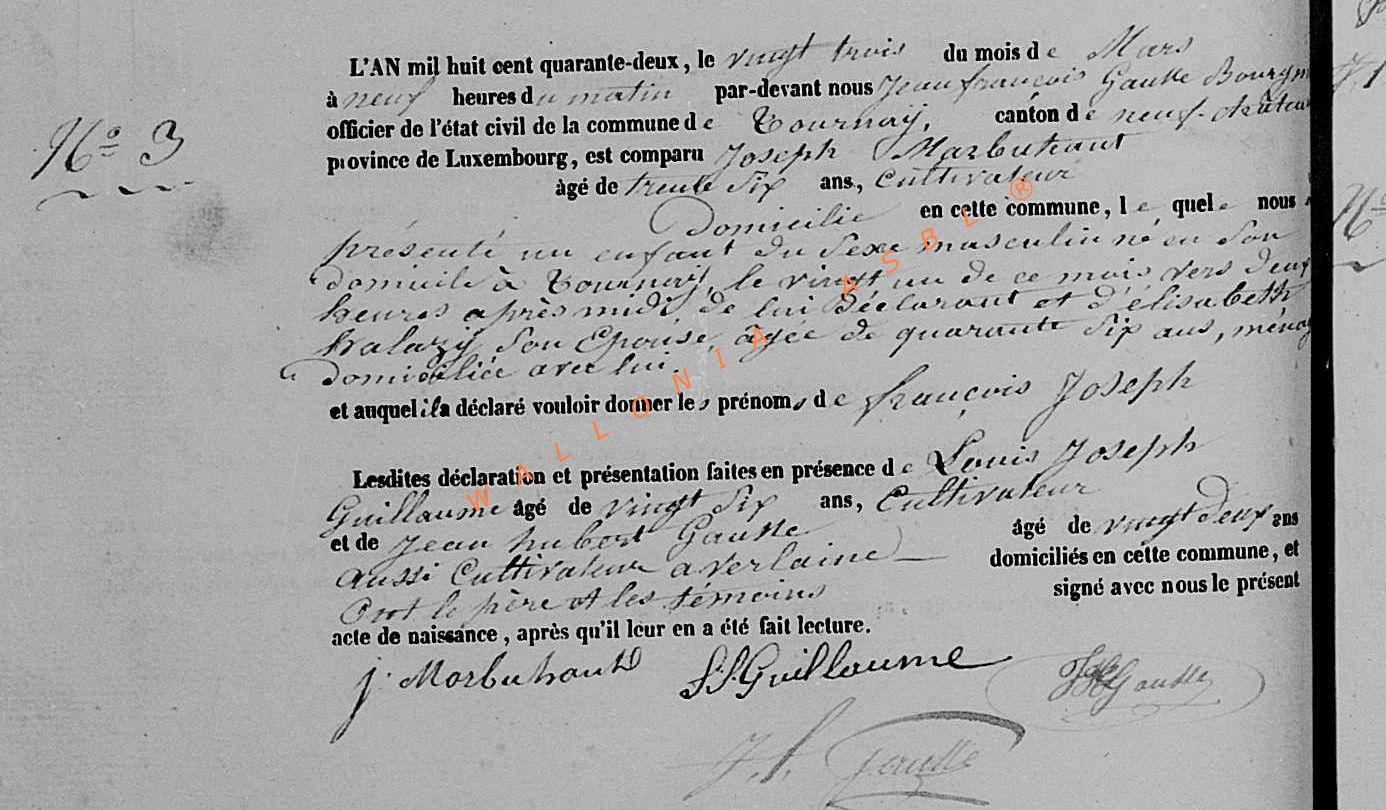 L'AN mil huit cent quarante-deux, le vingt trois du mois de Mars
à neuf heures du matin par-devant nous Jean françois Gausse Bourgm
officier de l'état civil de la commune de Tournay, canton de neuf-château
province de Luxembourg, est comparu Joseph Marbuhant
N° 3
âgé de trente Six ans, Cultivateur
Domicilié en cette commune, le quel e nous a
présenté un enfant du Sexe masculin né en Son
domicile à Tournay, le vingt un de ce mois vers deux
heures après midi, de lui Déclarant et d'élisabeth
halazy Son Epouse, âgée de quarante Six ans, ménag
Domiciliée avec lui.
et auquel il a déclaré vouloir donner les prénoms de françois Joseph
Lesdites déclaration et présentation faites en présence de Louis Joseph
Guillaume âgé de vingt Six ans, Cultivateur
et de Jean hubert Gausse âgé de vingt deux ans
aussi Cultivateur a verlaine domiciliés en cette commune, et
Ont le père et les témoins signé avec nous le présent
acte de naissance, après qu'il leur en a été fait lecture.
j. Morbuhant L.J. Guillaume Gausse
J. f. Gausse
WALLONIA ASBL ®